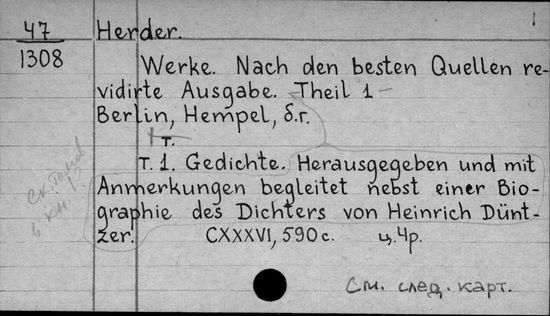 47 Herder.
1308
Werke. Nach den besten Quellen re-
vidirte Ausgabe. Theil 1-
Berlin, Hempel, б.г.
1 т.
т. 1. Gedichte. Herausgegeben und mit
Anmerkungen begleitet nebst einer Bio-
graphie des Dichters von Heinrich Dünt-
zer. CXXXVI, 590 с. ц. 4р.
См. след. карт.